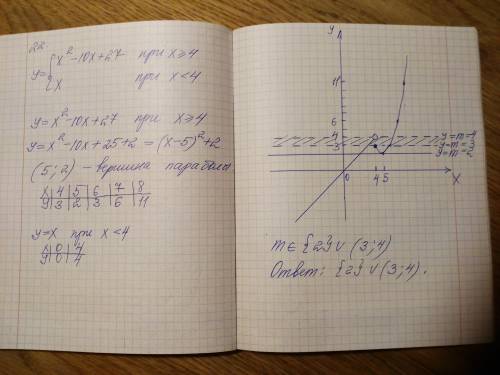 22.
y = { x² - 10x + 27 при x ≥ 4
x при x < 4
y = x² - 10x + 27 при x ≥ 4
y = x² - 10x + 25 + 2 = (x - 5)² + 2
(5; 2) - вершина параболы
x | 4 | 5 | 6 | 7 | 8
y | 3 | 2 | 3 | 6 | 11
y = x при x < 4
x | 0 | 4
y | 0 | 4
y
11
6
4
3
y = m = 4
y = m = 3
y = m = 2
0 4 5 x
m ∈ {2} ∪ (3; 4)
Ответ: {2} ∪ (3; 4).